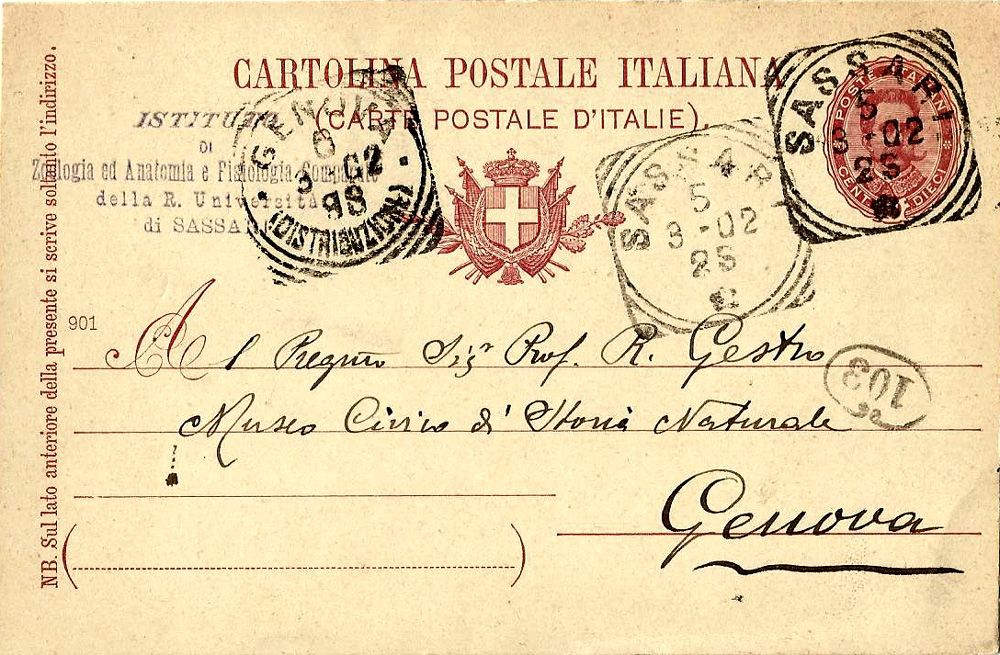 CARTOLINA POSTALE ITALIANA
(CARTE POSTALE D'ITALIE).
ISTITUTO
DI
Zoologia ed Anatomia e Fisiologia Comparate
della R. Università
di SASSARI
GENOVA
6
3-02
8S
(DISTRIBUZIONE)
SASSARI
5
3-02
2S
SASSARI
5
3-02
2S
POSTE ITALIANE
CENT. DIECI
NB. Sul lato anteriore della presente si scrive soltanto l'indirizzo.
901
Al Preg Sigr Prof. R. Gestro
103
Museo Civico di Storia Naturale
Genova